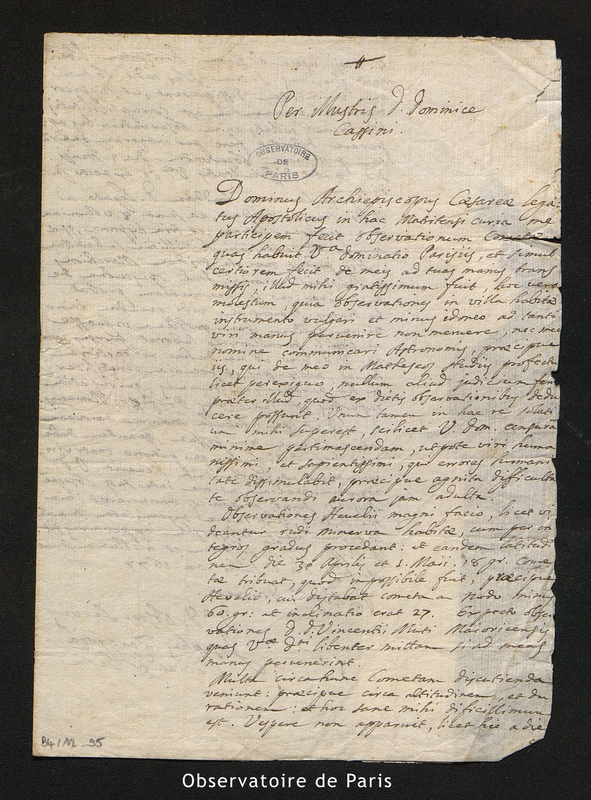 Per illustris D. Dominice
Cassini.
OBSERVATOIRE
DE
PARIS
Dominus Archiepiscopus Cæsareæ lega
tus Apostolicus in hac Matritensi curia me
participem fecit observationum Cometæ
quas habuit Vª dominatio Parisijs, et simul
certiorem fecit de meis ad tuas manus trans
missis, illud mihi gratissimum fuit, hoc vero
molestum, quia observationes in villa habitæ
instrumento vulgari et minus idoneo ad tanti
viri manus pervenire non meruere, nec meo
nomine communicari Astronomis, præcipue
iis, qui de meo in Matheseos studijs profectu
licet perexiguo, nullum aliud judicium fer
præter illud, quod ex dictis observationibus dedu
cere possunt. Unum tamen in hac re solati
um mihi superest, scilicet V. dom. censura
minime pertimescendam, utpote viri huma
nissimi, et sapientissimi, qui errores humani
tate dissimulabit, præcipue agnita difficulta
te observandi aurora jam adulta.
Observationes Hevelii magni facio, licet vi
deantur rudi minerva habitæ, cum per in
tegros gradus procedant: ut eandem latitudi
nem die 30 Aprilis et 1. Maii. 18 gr. Come
tæ tribuat, quod impossibile fuit, præcipue
Hevelio, cui distabat cometa a nodo minus
60. gr: ut inclinatio erat 27. Expecto obser
vationes D. D. Vincentii Muti Maioricensis
quas Væ dni libenter mittam si ad meas
manus pervenerint.
Multa circa hunc Cometam discutienda
veniunt: præcipue circa altitudinem, et du
rationem: et hoc sane mihi dificillimum
est. Vespere non apparuit, licet hic a die
B4/12 95
Observatoire de Paris